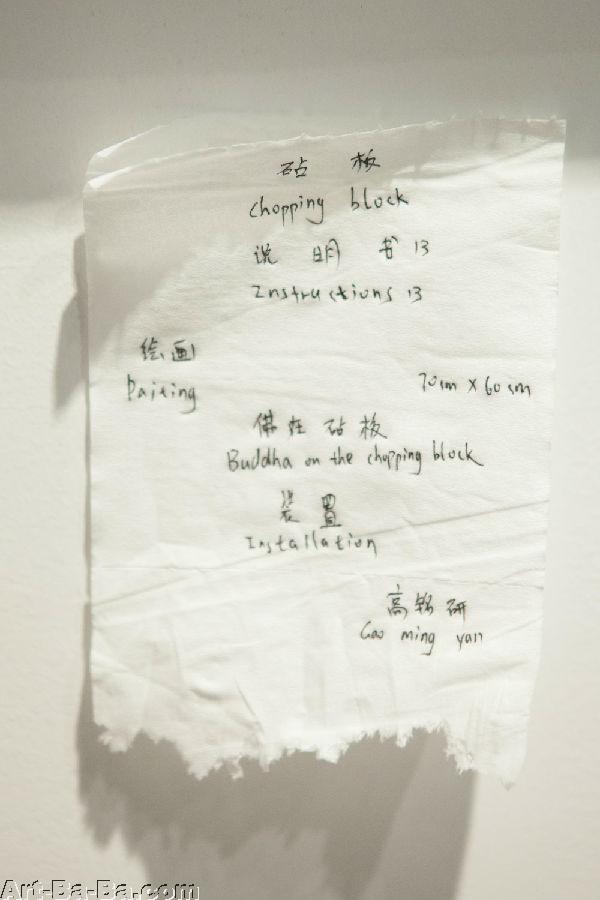 砧 板
Chopping block
说 明 书 13
Instructions 13
绘画
Paiting 70cm X 60cm
佛在砧板
Buddha on the chopping block
装 置
Installation
高铭研
Gao ming yan
Art-Ba-Ba.com